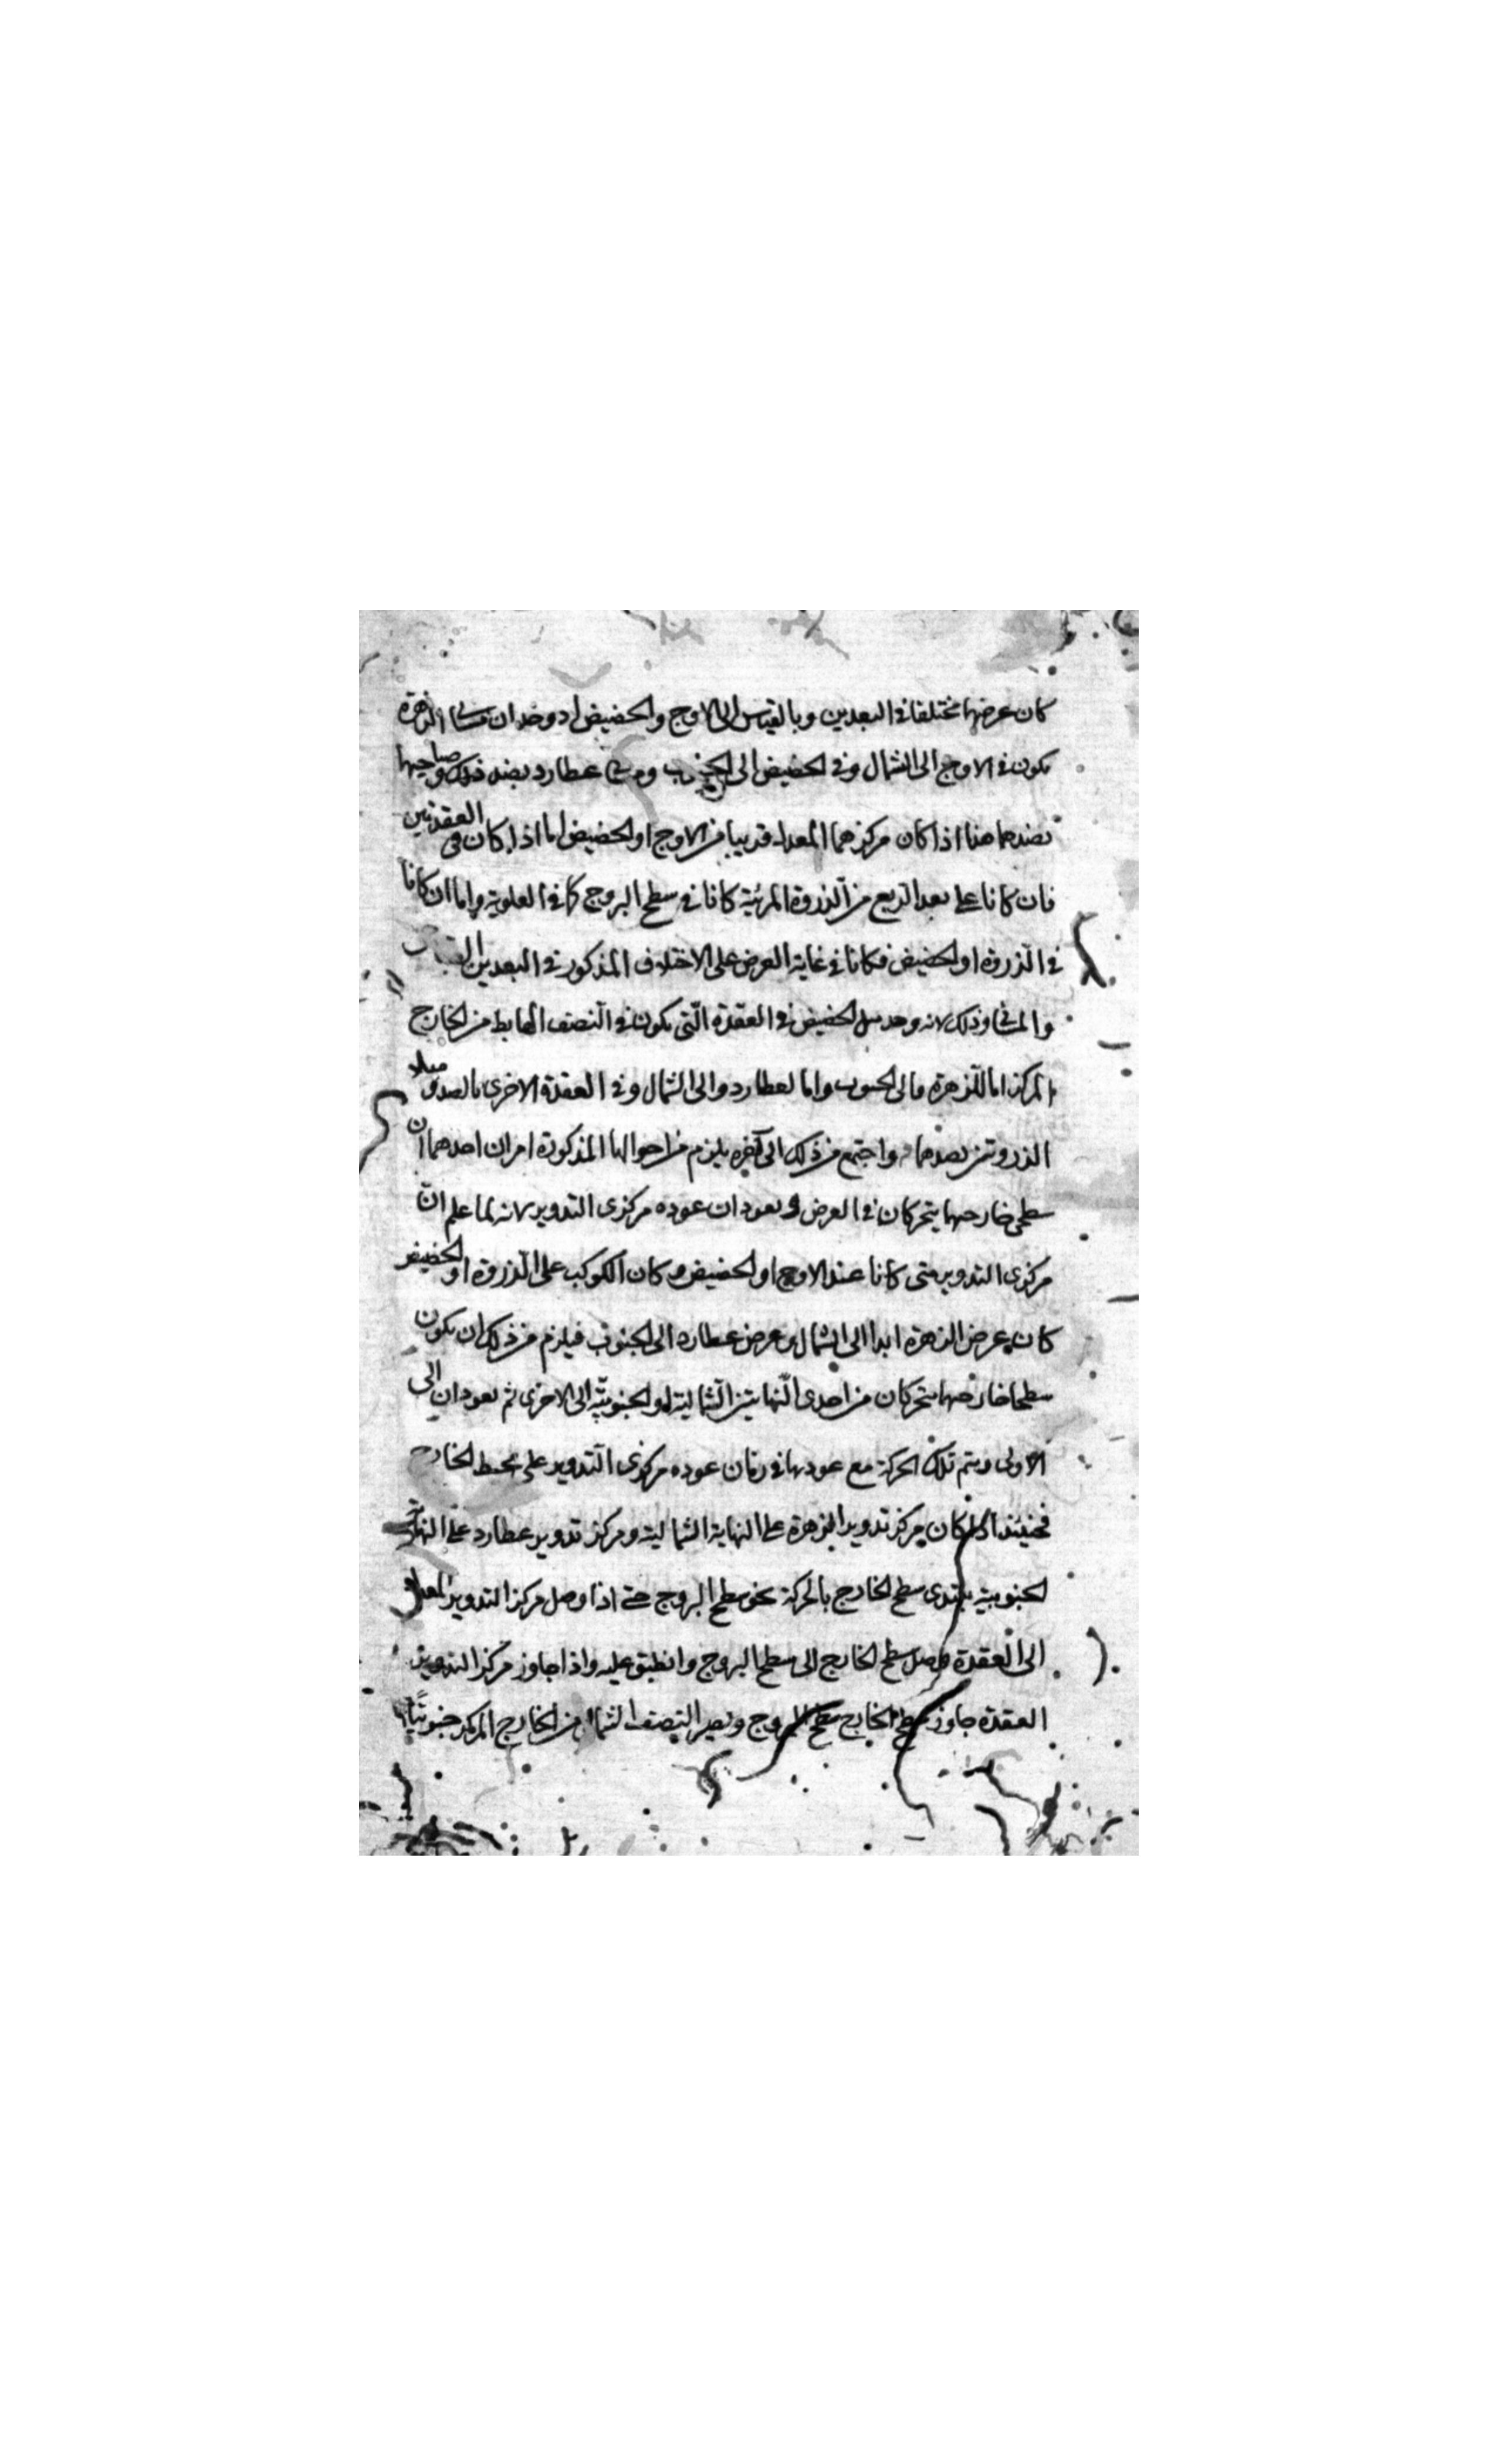 كان عرضهما مختلفا في البعدين وبالقياس الى الاوج والحضيض اذ وجدان مسائى الزهرة
يكون في الاوج الى الشمال وفي الحضيض الى الجنوب ومسائى عطارد بضد ذلك وصباحيها
بضدهما هنا اذا كان مركزهما المعدل قريبا من الاوج او الحضيض اما اذا كان في العقدتين
فان كانا على بعد الربع من الذروة المرئية كانا في سطح البروج كما في العلوية واما ان كانا
في الذروة او الحضيض فكانا في غاية العرض على الاختلاف المذكور في البعدين
وذلك لانه وجد ميل الحضيض في العقدة التي يكون في النصف الهابط من الخارج
المركز اما للزهرة فالى الجنوب واما لعطارد والى الشمال وفي العقدة الاخرى بالضد وميلا
الذروتين بضدهما واجتمع من ذلك الى آخره يلزم من احوالها المذكورة امران احدهما ان
سطحى خارجهما يتحركان في العرض ويعودان عوده مركزى التدوير لانه لما علم ان
مركزى التدوير متى كانا عند الاوج او الحضيض وكان الكوكب على الذروة او الحضيض
كان عرض الزهرة ابدا الى الشمال وعرض عطارد الى الجنوب فيلزم من ذلك ان يكون
سطحا خارجهما يتحركان من احدى النهايتين الشمالية او الجنوبية الى الاخرى ثم يعودان الى
الاولى ويتم تلك الحركة مع عودها في زمان عوده مركزى التدوير على محيط الخارج
فحينئذ اذا كان مركز تدوير الزهرة على النهاية الشمالية ومركز تدوير عطارد على النهاية
الجنوبية يبتدى سطح الخارج بالحركة نحو سطح البروج حتى اذا وصل مركز التدوير المعدل
الى العقدة وصل سطح الخارج الى سطح البروج وانطبق عليه واذا جاوز مركز التدوير
العقدة جاوز سطح الخارج سطح البروج ويصير النصف الشمالى من الخارج المركز جنوبيا